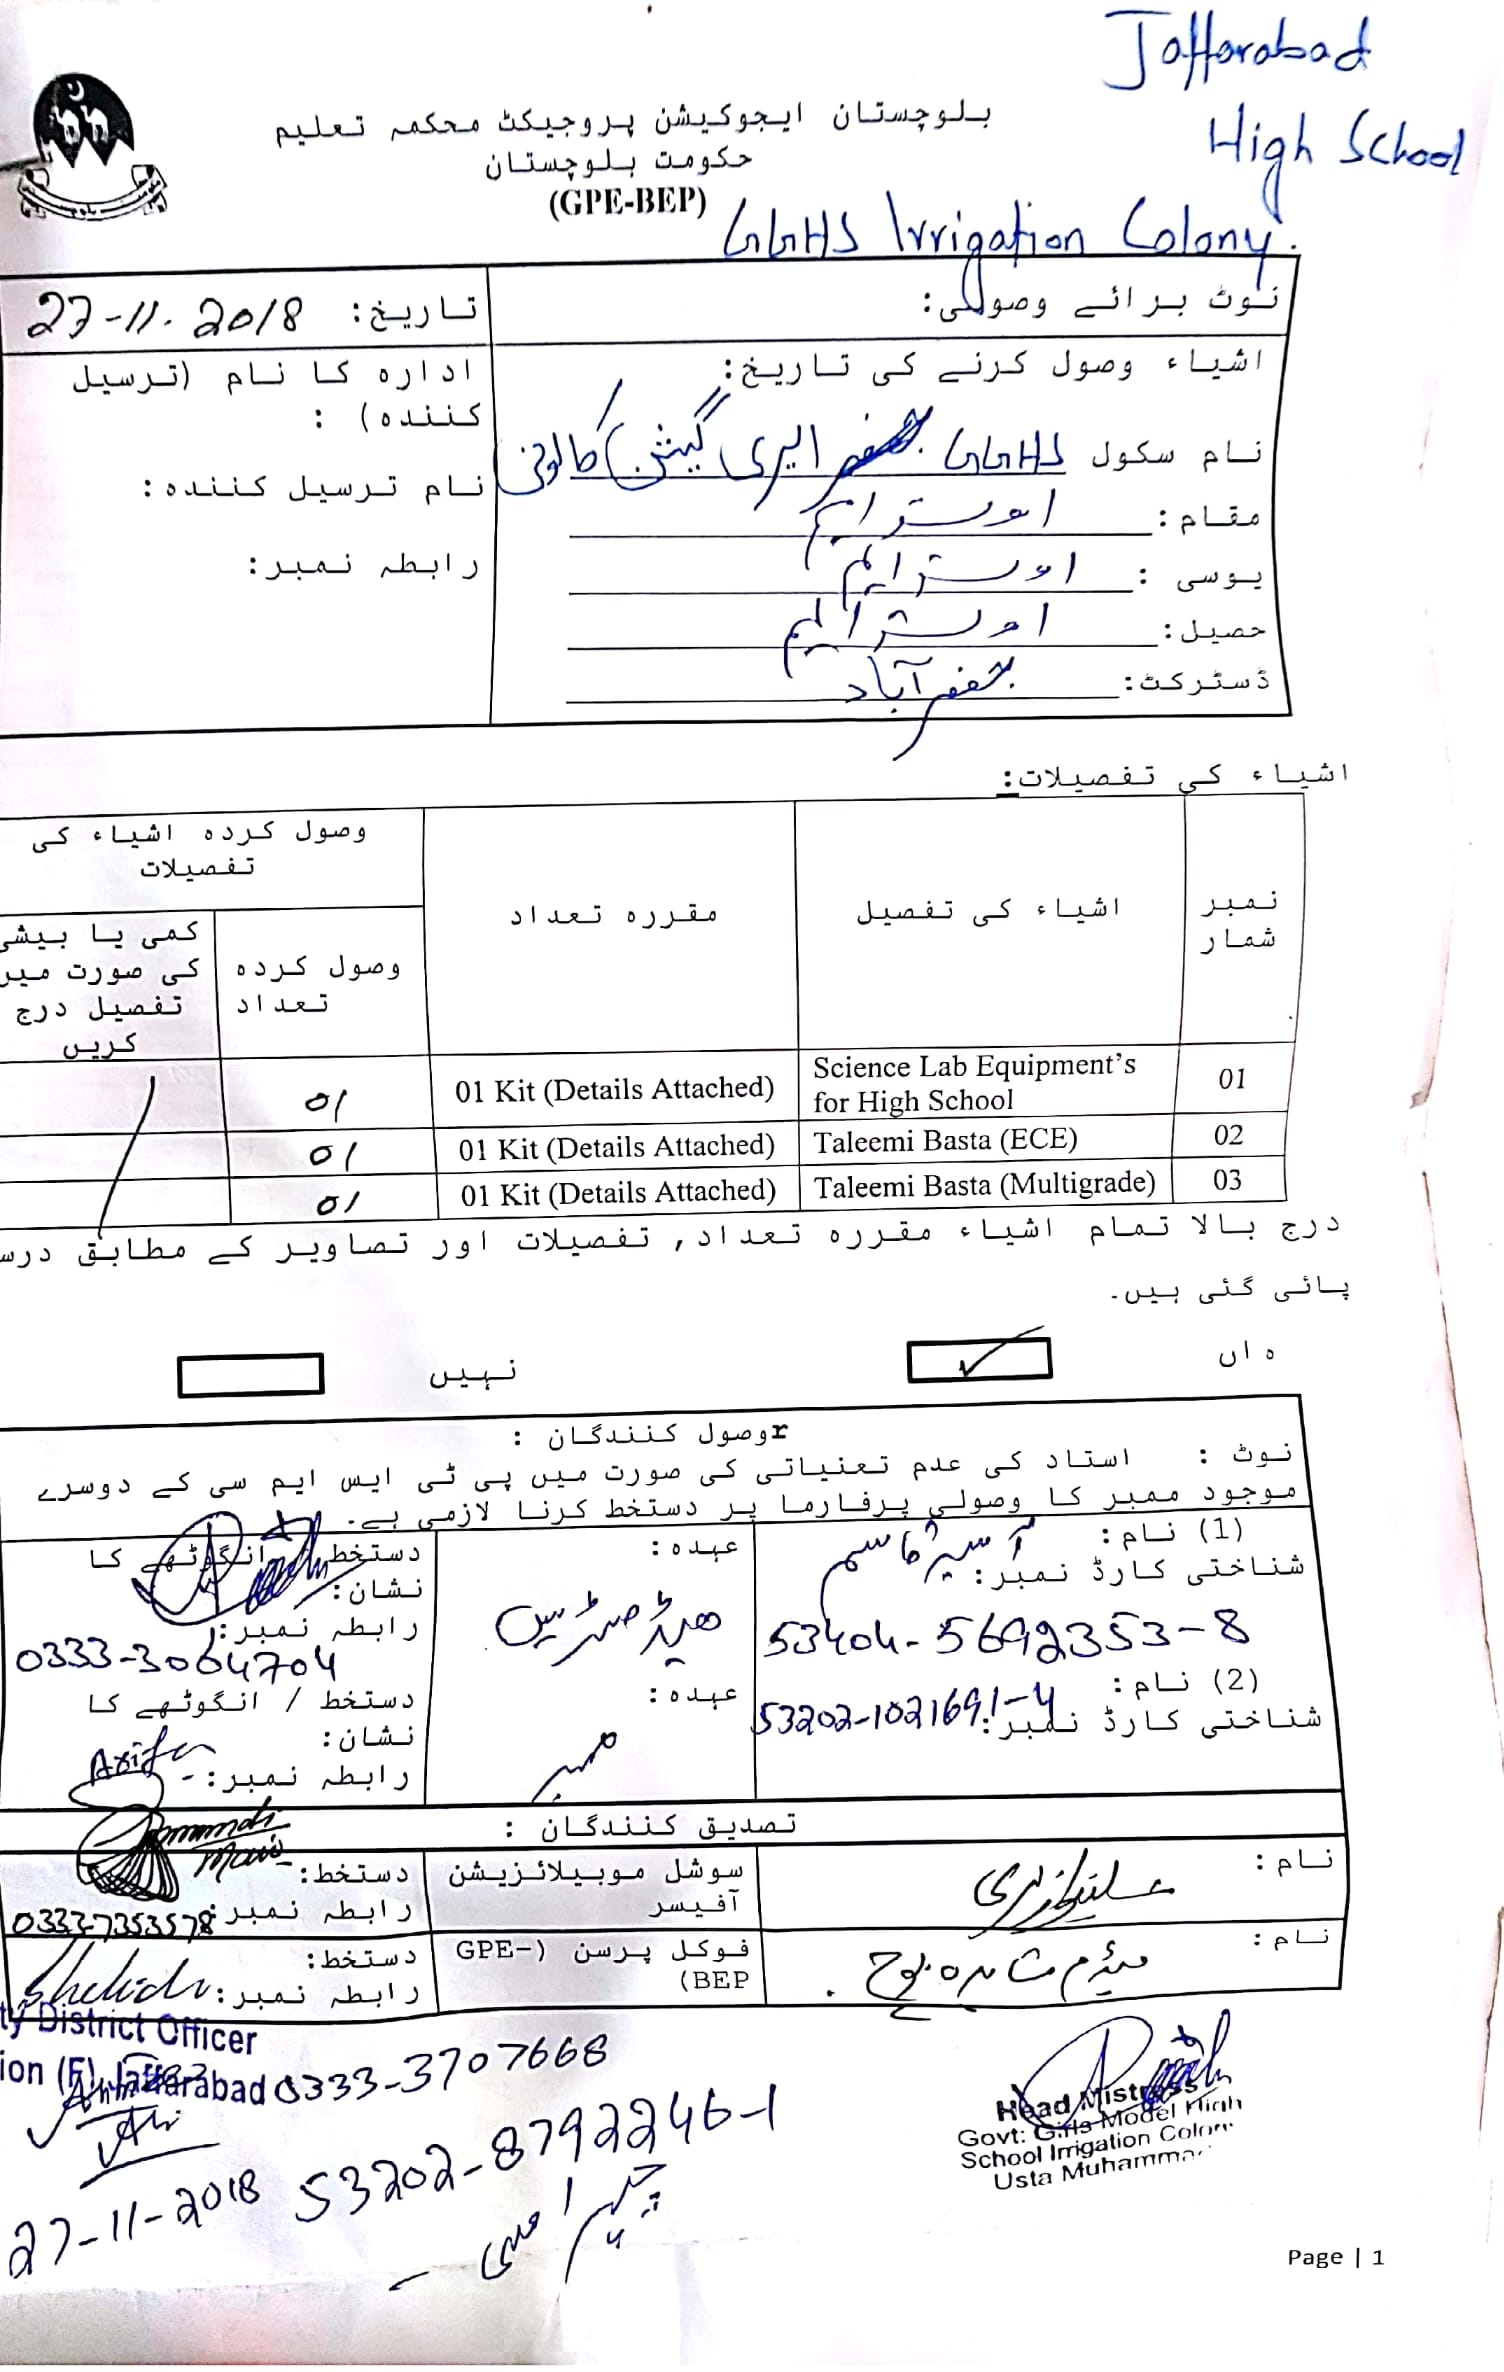 Jaffarabad
High School
بلوچستان ایجوکیشن پروجیکٹ محکمہ تعلیم
حکومت بلوچستان
(GPE-BEP)
GGHS Irrigation Colony.
نوٹ برائے وصولی:
تاریخ: 27-11-2018
اشیاء وصول کرنے کی تاریخ:
نام سکول GGHS ایری گیشن کالونی
مقام: اوستہ محمد
یوسی :
حصیل:
ڈسٹرکٹ: جعفر آباد
ادارہ کا نام (ترسیل
کنندہ) :
نام ترسیل کنندہ:
رابطہ نمبر:
اشیاء کی تفصیلات:
نمبر شمار
اشیاء کی تفصیل
مقررہ تعداد
وصول کردہ اشیاء کی
تفصیلات
وصول کردہ
تعداد
کمی یا بیشی
کی صورت میں
تفصیل درج
کریں
01 Science Lab Equipment’s for High School 01 Kit (Details Attached) 01
02 Taleemi Basta (ECE) 01 Kit (Details Attached) 01
03 Taleemi Basta (Multigrade) 01 Kit (Details Attached) 01
درج بالا تمام اشیاء مقررہ تعداد, تفصیلات اور تصاویر کے مطابق درس
پائی گئی ہیں۔
ہاں ✓
نہیں
rوصول کنندگان :
نوٹ : استاد کی عدم تعنیاتی کی صورت میں پی ٹی ایس ایم سی کے دوسرے
موجود ممبر کا وصولی پرفارما پر دستخط کرنا لازمی ہے۔
(1) نام: آسیہ قاسم
شناختی کارڈ نمبر:
53404-5692353-8
عہدہ:
ہیڈ مسٹریس
دستخط / انگوٹھے کا
نشان:
رابطہ نمبر:
0333-3064704
(2) نام:
شناختی کارڈ نمبر: 53202-1021691-4
عہدہ:
ممبر
دستخط / انگوٹھے کا
نشان:
رابطہ نمبر:
تصدیق کنندگان :
نام:
سوشل موبیلائزیشن
آفیسر
دستخط:
رابطہ نمبر: 0333-7353578
نام:
فوکل پرسن (GPE-
BEP)
دستخط:
رابطہ نمبر:
ty District Officer
ion (F) Jaffarabad 0333-3707668
53202-8792246-1
27-11-2018
Head Mistress
Govt: Girls Model High
School Irrigation Colony
Usta Muhamma
Page | 1